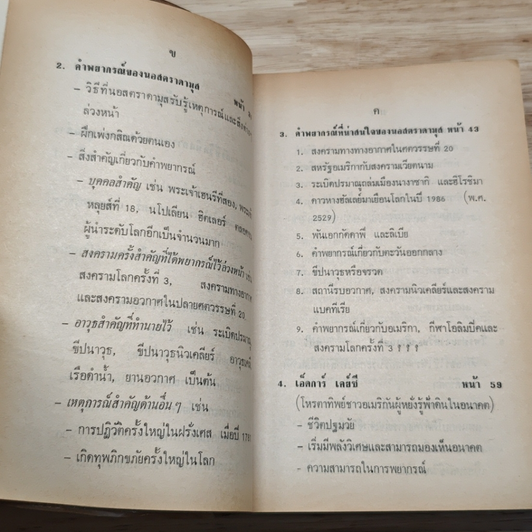 ข
2. คำพยากรณ์ของนอสตราดามุส หน้า
– วิธีที่นอสตราดามุสรับรู้เหตุการณ์และ
ล่วงหน้า
– ฝึกเพ่งกสิณด้วยตนเอง
– สิ่งสำคัญเกี่ยวกับคำพยากรณ์
– บุคคลสำคัญ เช่น พระเจ้าเฮนรีที่สอง,
หลุยส์ที่ 18, นโปเลียน ฮิตเลอร์
ผู้นำระดับโลกอีกเป็นจำนวนมาก
– สงครามครั้งสำคัญที่ได้พยากรณ์ไว้ล่วงหน้า
สงครามโลกครั้งที่ 3, สงครามทางอวกาศ
และสงครามอวกาศในปลายศตวรรษที่ 20
– อาวุธสำคัญที่ทำนายไว้ เช่น ระเบิดปรมาณู
ขีปนาวุธ, ขีปนาวุธนิวเคลียร์
เรือดำน้ำ, ยานอวกาศ เป็นต้น
– เหตุการณ์สำคัญด้านอื่น ๆ เช่น
– การปฏิวัติครั้งใหญ่ในฝรั่งเศส เมื่อปี
– เกิดทุพภิกขภัยครั้งใหญ่ในโลก
ค
3. คำพยากรณ์ที่น่าสนใจของนอสตราดามุส หน้า 43
1. สงครามทางทางอากาศในศตวรรษที่ 20
2. สหรัฐอเมริกากับสงครามเวียดนาม
3. ระเบิดปรมาณูถล่มเมืองนางาซากิ และฮิโรชิมา
4. ดาวหางฮัลเลย์มาเยือนโลกในปี 1986 (พ.ศ.
2529)
5. พันเอกกัดดาฟี และลิเบีย
6. คำพยากรณ์เกี่ยวกับตะวันออกกลาง
7. ขีปนาวุธหรือจรวด
8. สถานีรบอวกาศ, สงครามนิวเคลียร์และสงคราม
แบคทีเรีย
9. คำพยากรณ์เกี่ยวกับอเมริกา, กีฬาโอลิมปิคและ
สงครามโลกครั้งที่ 3 ! ! !
4. เอ็ดการ์ เคย์ซี หน้า 59
(โหราทิพย์ชาวอเมริกันผู้หยั่งรู้ฟ้าดินในอนาคต)
– ชีวิตปฐมวัย
– เริ่มมีพลังวิเศษและสามารถมองเห็นอนาคต
– ความสามารถในการพยากรณ์